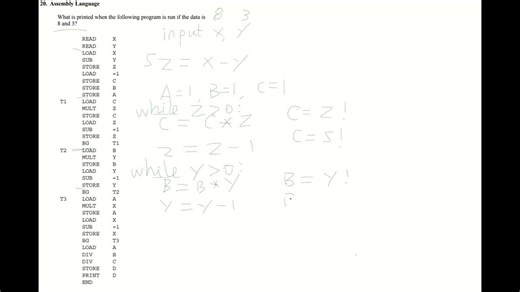 20. Assembly Language
What is printed when the following program is run if the data is
8 and 3?
8 3
input X, Y
READ X
READ Y
LOAD X
SUB Y
STORE Z
LOAD =1
STORE C
STORE B
STORE A
T1 LOAD C
MULT Z
STORE C
LOAD Z
SUB =1
STORE Z
BG T1
T2 LOAD B
MULT Y
STORE B
LOAD Y
SUB =1
STORE Y
BG T2
T3 LOAD A
MULT X
STORE A
LOAD X
SUB =1
STORE X
BG T3
LOAD A
DIV B
DIV C
STORE D
PRINT D
END
5 Z = X - Y
A = 1, B = 1, C = 1
while Z > 0:
C = C * Z
Z = Z - 1
while Y > 0:
B = B * Y
Y = Y - 1
C = Z!
C = 5!
B = Y!